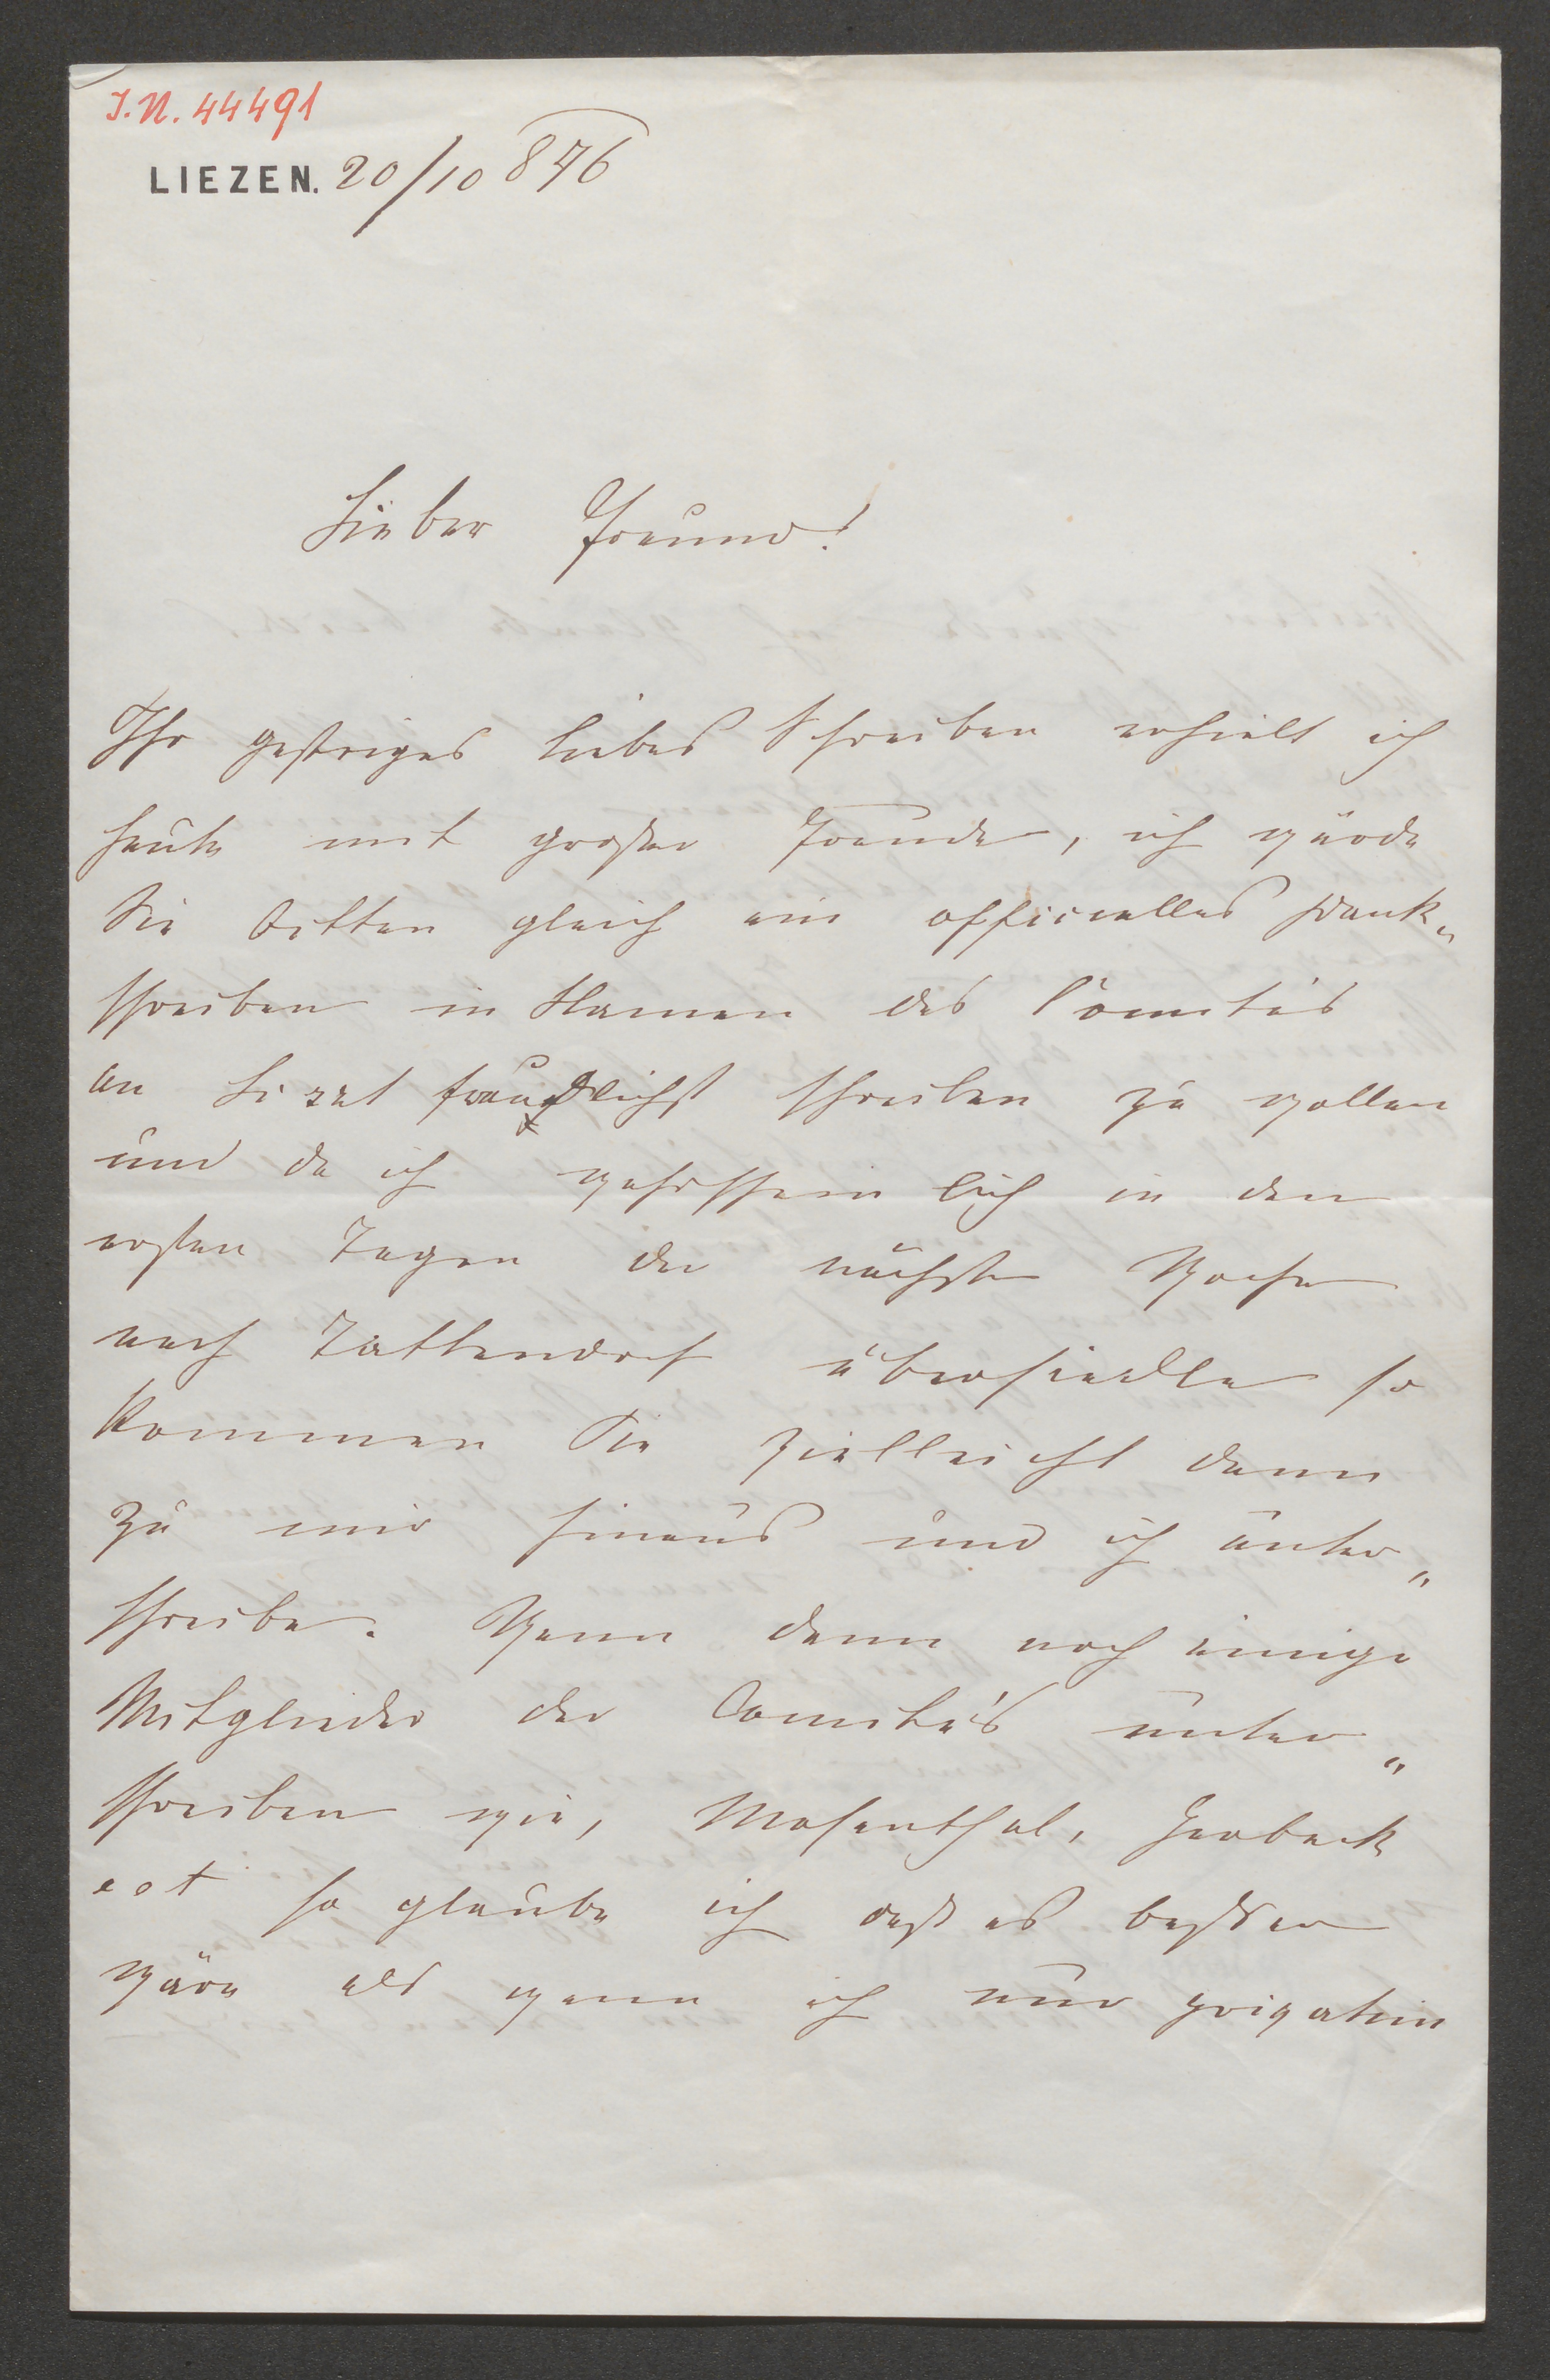 I.N. 44491
LIEZEN. 20/10 876
Lieber Freund!
Ihr gestriges liebes Schreiben erhielt ich
heute mit großer Freude, ich würde
Sie bitten gleich ein officielles Dank„
schreiben im Namen des Comités
an Liszt freundlichst schreiben zu wollen
und da ich wahrscheinlich in den
ersten Tagen der nächsten Woche
nach Tattendorf übersiedle so
kommen Sie vielleicht dann
zu mir hinaus und ich unter„
schreibe. Wenn dann noch einige
Mitglieder des Comité's unter„
schreiben wie, Mosenthal, Herbeck
ect so glaube ich daß es besser
wäre als wenn ich nur privatim